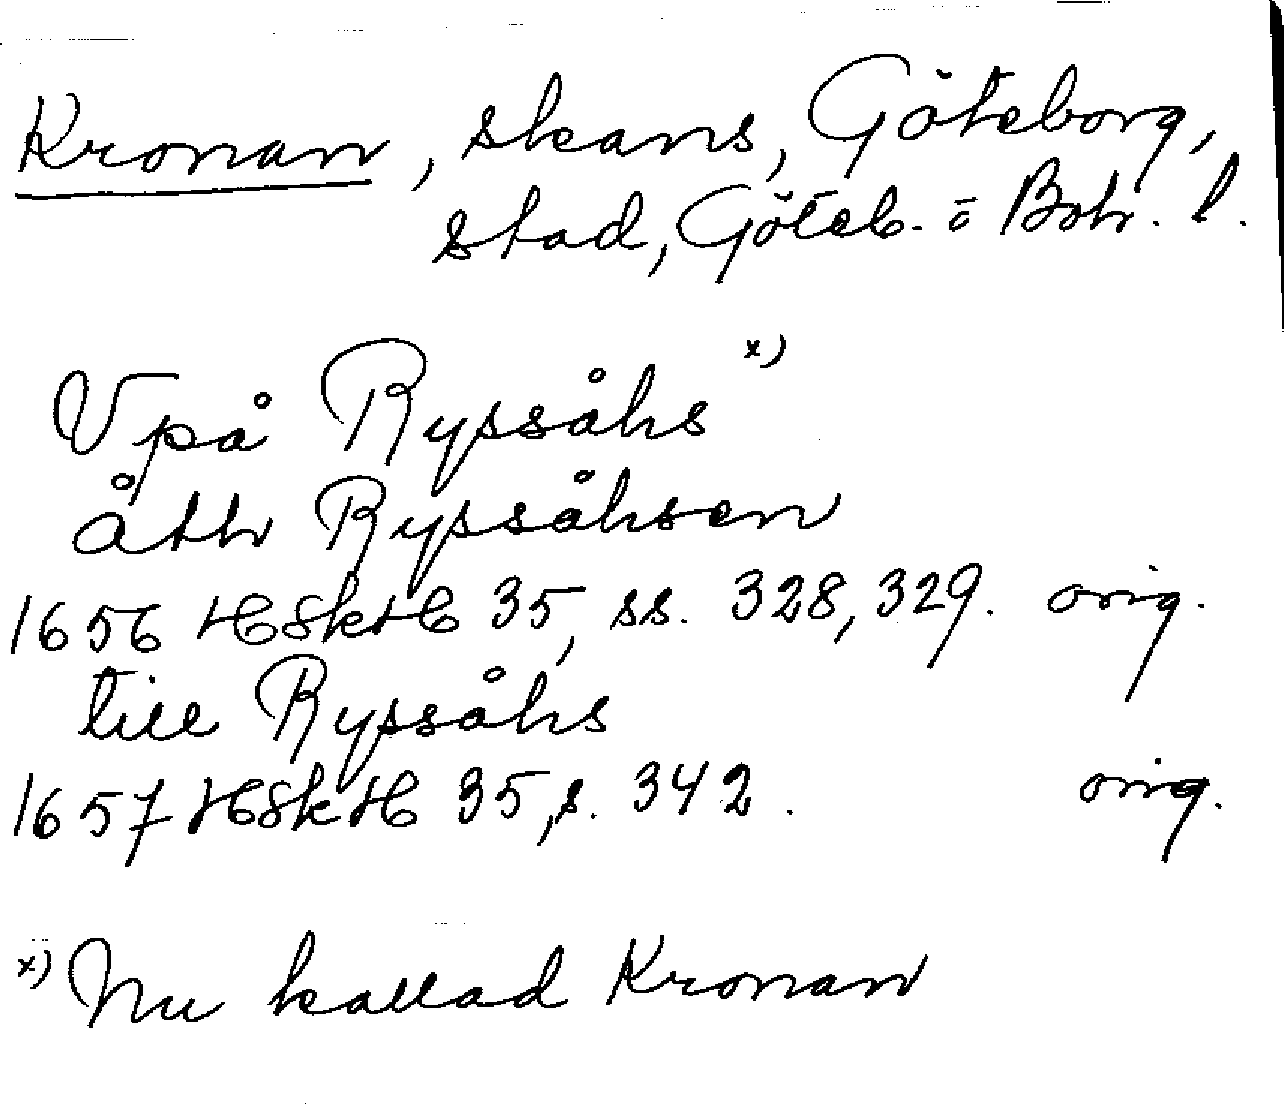 Kronan, skans, Göteborg,
stad, Göteb. o Boh. l.
Vpå Ryssåhs x)
åth Ryssåhsen
1656 HSkH 35, ss. 328, 329. orig.
till Ryssåhs
1657 HSkH 35, s. 342. orig.
x) Nu kallad Kronan